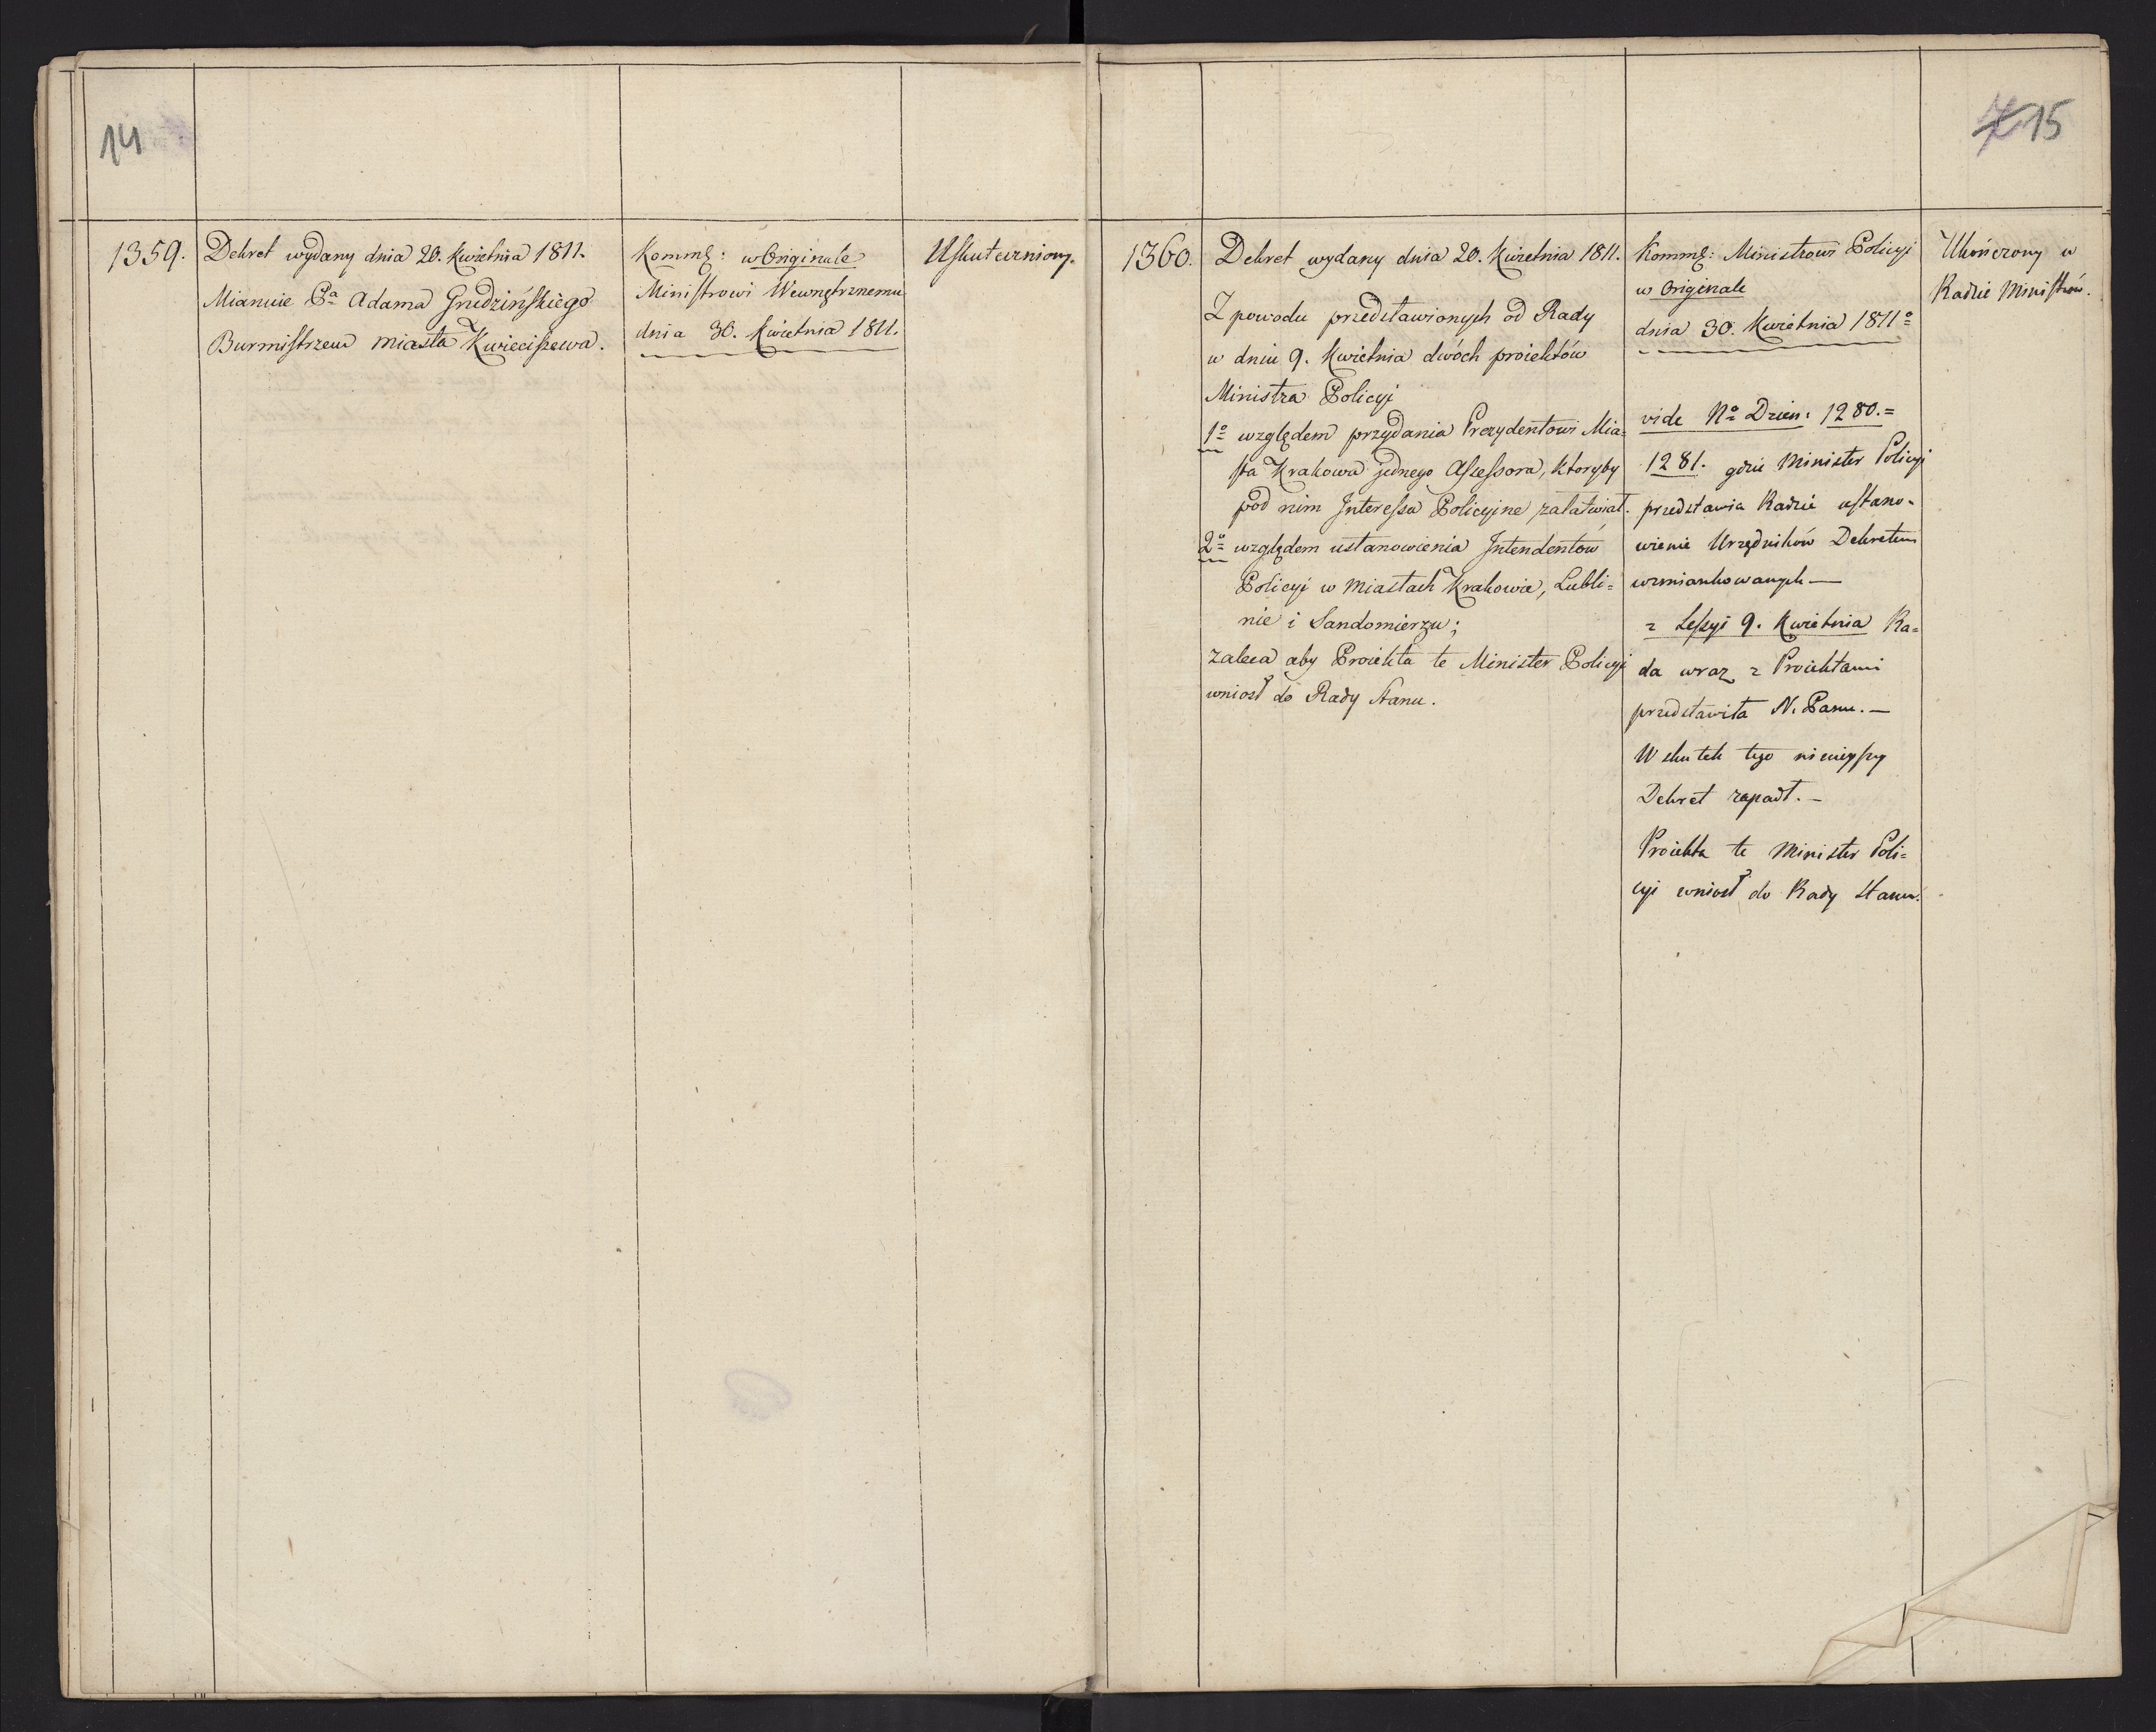 14
1359.
Dekret wydany dnia 20. Kwietnia 1811.
Mianuie Pa Adama Grudzińskiego
Burmistrzem miasta Kwieciszewa.
Komm: w Originale
Ministrowi Wewnętrznemu
dnia 30. Kwietnia 1811.
Uskuteczniony.
15
1360.
Dekret wydany dnia 20. Kwietnia 1811.
Z powodu przedstawionych od Rady
w dniu 9. Kwietnia dwóch proiektów
Ministra Policyi
1o względem przydania Prezydentowi Mia=
sta Krakowa jednego Assessora, ktoryby
pod nim Interessa Policyine załatwiał.
2o względem ustanowienia Intendentów
Policyi w Miastach Krakowie, Lubli=
nie i Sandomierzu;
zaleca aby Proiekta te Minister Policyi
wniosł do Rady Stanu.
Komm: Ministrowi Policyi
w Originale
dnia 30. Kwietnia 1811o
vide No Dzien: 1280.=
1281. gdzie Minister Policyi
przedstawia Radzie ustano-
wienie Urzędników Dekretem
wzmiankowanych —
z Sessyi 9. Kwietnia Ra=
da wraz z Proiektami
przedstawiła N. Panu. —
W skutek tego ninieyszy
Dekret zapadł. —
Proiekta te Minister Poli=
cyi wniosł do Rady Stanu.
Ukończony w
Radzie Ministrów.